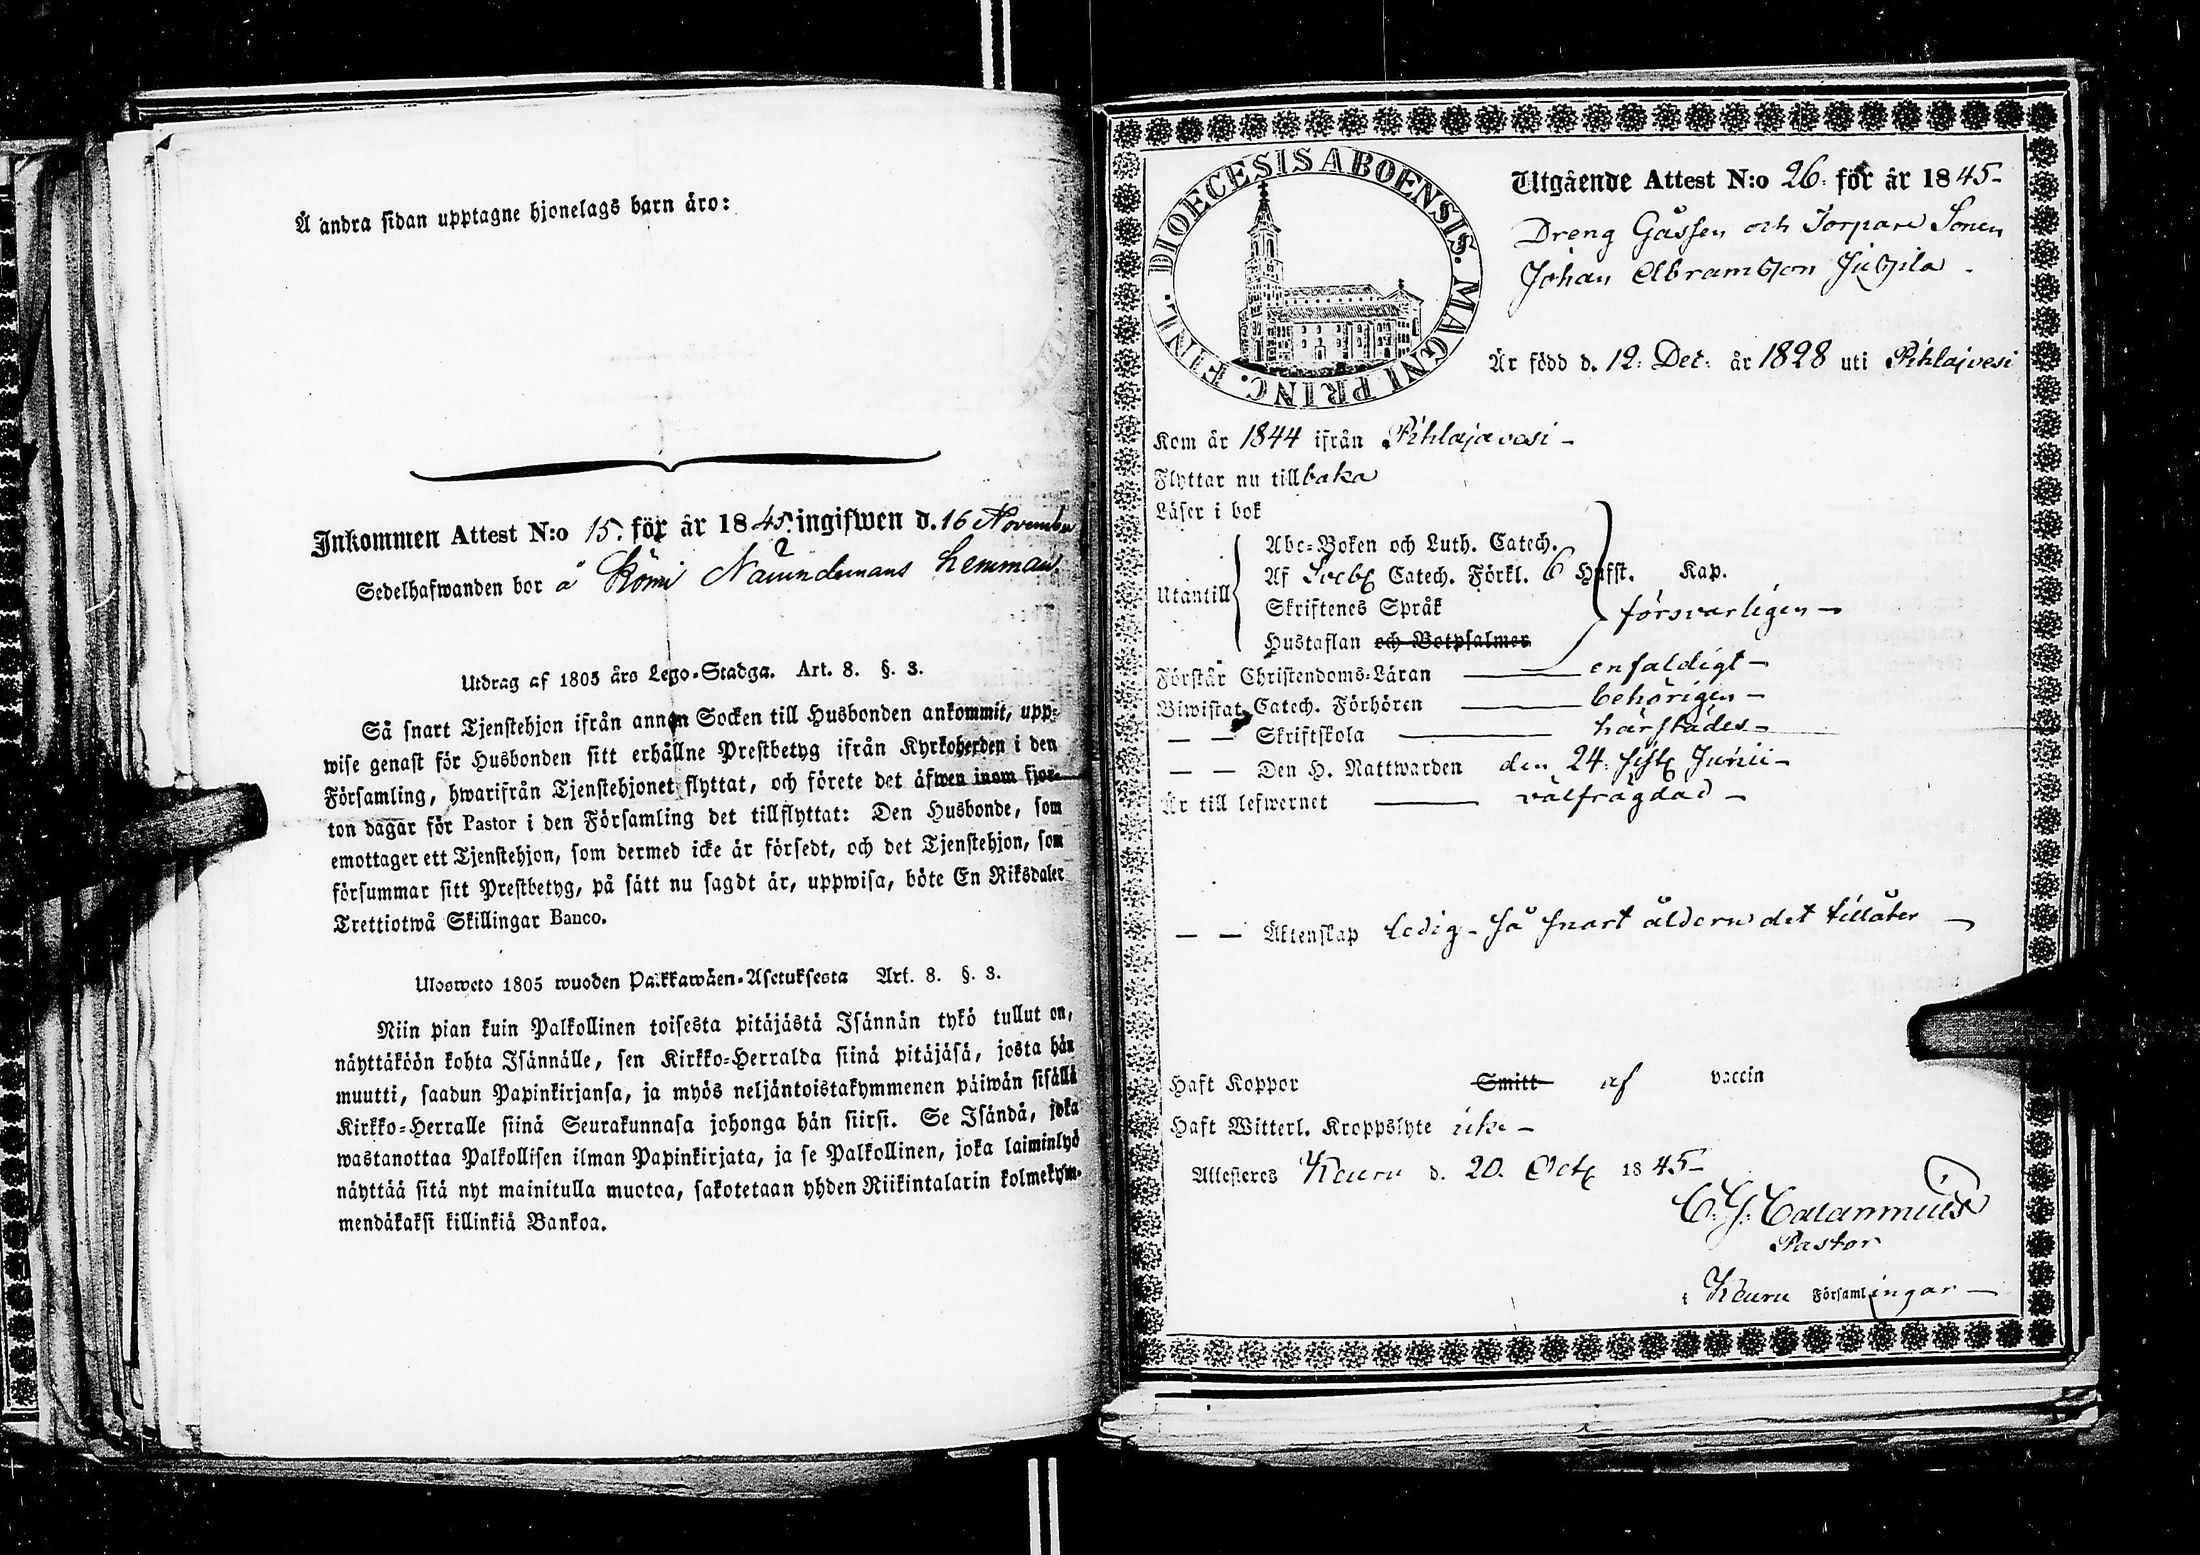 Å andra sidan upptagne hjonelags barn äro:
Inkommen Attest N:o 15. för år 1845. ingifwen d. 16 November
Sedelhafwanden bor å Kömi hemman
Utdrag af 1805 års Lego-Stadga. Art. 8. §. 3.
Så snart Tjenstehjon ifrån annan Socken till Husbonden ankommit, upp-
wise genast för Husbonden sitt erhållne Prestbetyg ifrån Kyrkoherden i den
Församling, hwarifrån Tjenstehjonet flyttat, och förete det äfwen inom fjor-
ton dagar för Pastor i den Församling det tillflyttat: Den Husbonde, som
emottager ett Tjenstehjon, som dermed icke är försedt, och det Tjenstehjon, som
försummar sitt Prestbetyg, på sätt nu sagdt är, uppwisa, böte En Riksdaler
Trettiotwå Skillingar Banco.
Ulosweto 1805 wuoden Palkkawäen-Asetuksesta Art. 8. §. 3.
Niin pian kuin Palkollinen toisesta pitäjästä Isännän tykö tullut on,
näyttäköön kohta Isännälle, sen Kirkko-Herralda siinä pitäjäsä, josta hän
muutti, saadun Papinkirjansa, ja myös neljäntoistakymmenen päiwän sisällä
Kirkko-Herralle siinä Seurakunnasa johonga hän siirsi. Se Isändä, joka
wastanottaa Palkollisen ilman Papinkirjata, ja se Palkollinen, joka laiminlyö
näyttää sitä nyt mainitulla muotoa, sakotetaan yhden Riikintalarin kolmekym-
mendäkaksi killinkiä Bankoa.
DIOECESIS ABOENSIS. MAGNI PRINC. FINL.
Utgående Attest N:o 26. för år 1845-
Dreng Gåssen och Torpare Sonen
Johan Abramsson Jussila
Är född d. 12. Dec. år 1828 uti Pihlajvesi
Kom år 1844 ifrån Pihlajavesi -
Flyttar nu tillbaka
Läser i bok
Abc-Boken och Luth. Catech.
Utantill Af Svebs Catech. Förkl. 6 Hufst. Kap.
Skriftenes Språk försvarligen -
Hustaflan och Botpsalmer
Förstår Christendoms-Läran enfaldigt -
Biwistat Catech. Förhören behörigen -
— — Skriftskola härstädes -
— — Den H. Nattwarden den 24. sistl Junii -
Är till lefwernet välfrägdad -
— — Äktenskap ledig - så snart åldern det tillåter -
Haft Koppor Smitt af vaccin
Haft Witterl. Kroppslyte icke -
Attesteres Keuru d. 20. Oct 1845 -
Pastor
i Keuru Församlingar -